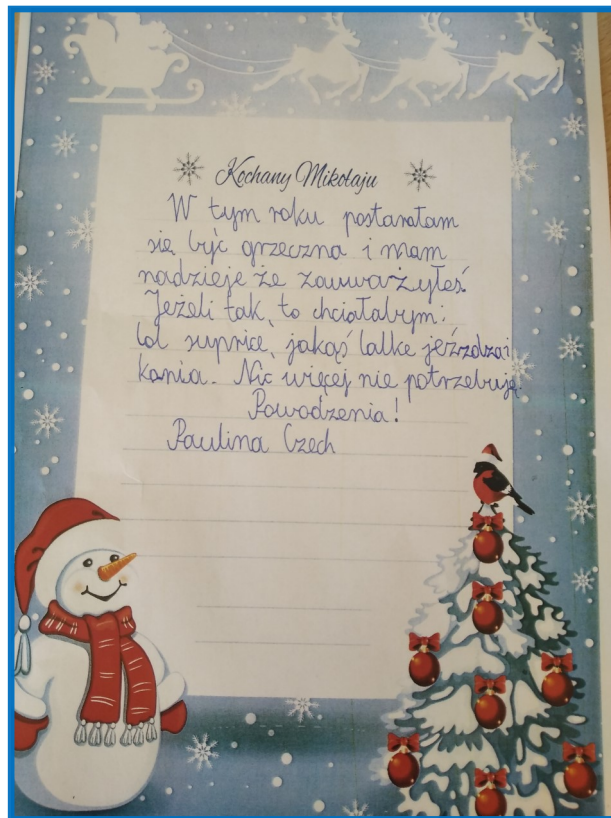 Kochany Mikołaju
W tym roku postarałam
się być grzeczna i mam
nadzieje że zauważyłeś.
Jeżeli tak, to chciałabym:
lol suprice, jakąś lalke jeźdzai
kania. Nic więcej nie potrzebuję.
Powodzenia!
Paulina Czech